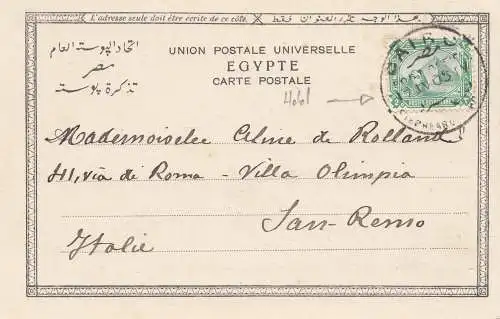 L'adresse seule doit être écrite de ce côté.
هذا الوجه تحرر العنوان فقط
اتحاد البوسته العام
مصر
تذكرة بوسته
UNION POSTALE UNIVERSELLE
EGYPTE
CARTE POSTALE
CAIRO
مصر
Mademoiselle Celine de Rolland
41, via di Roma - Villa Olimpia
San-Remo
Italie